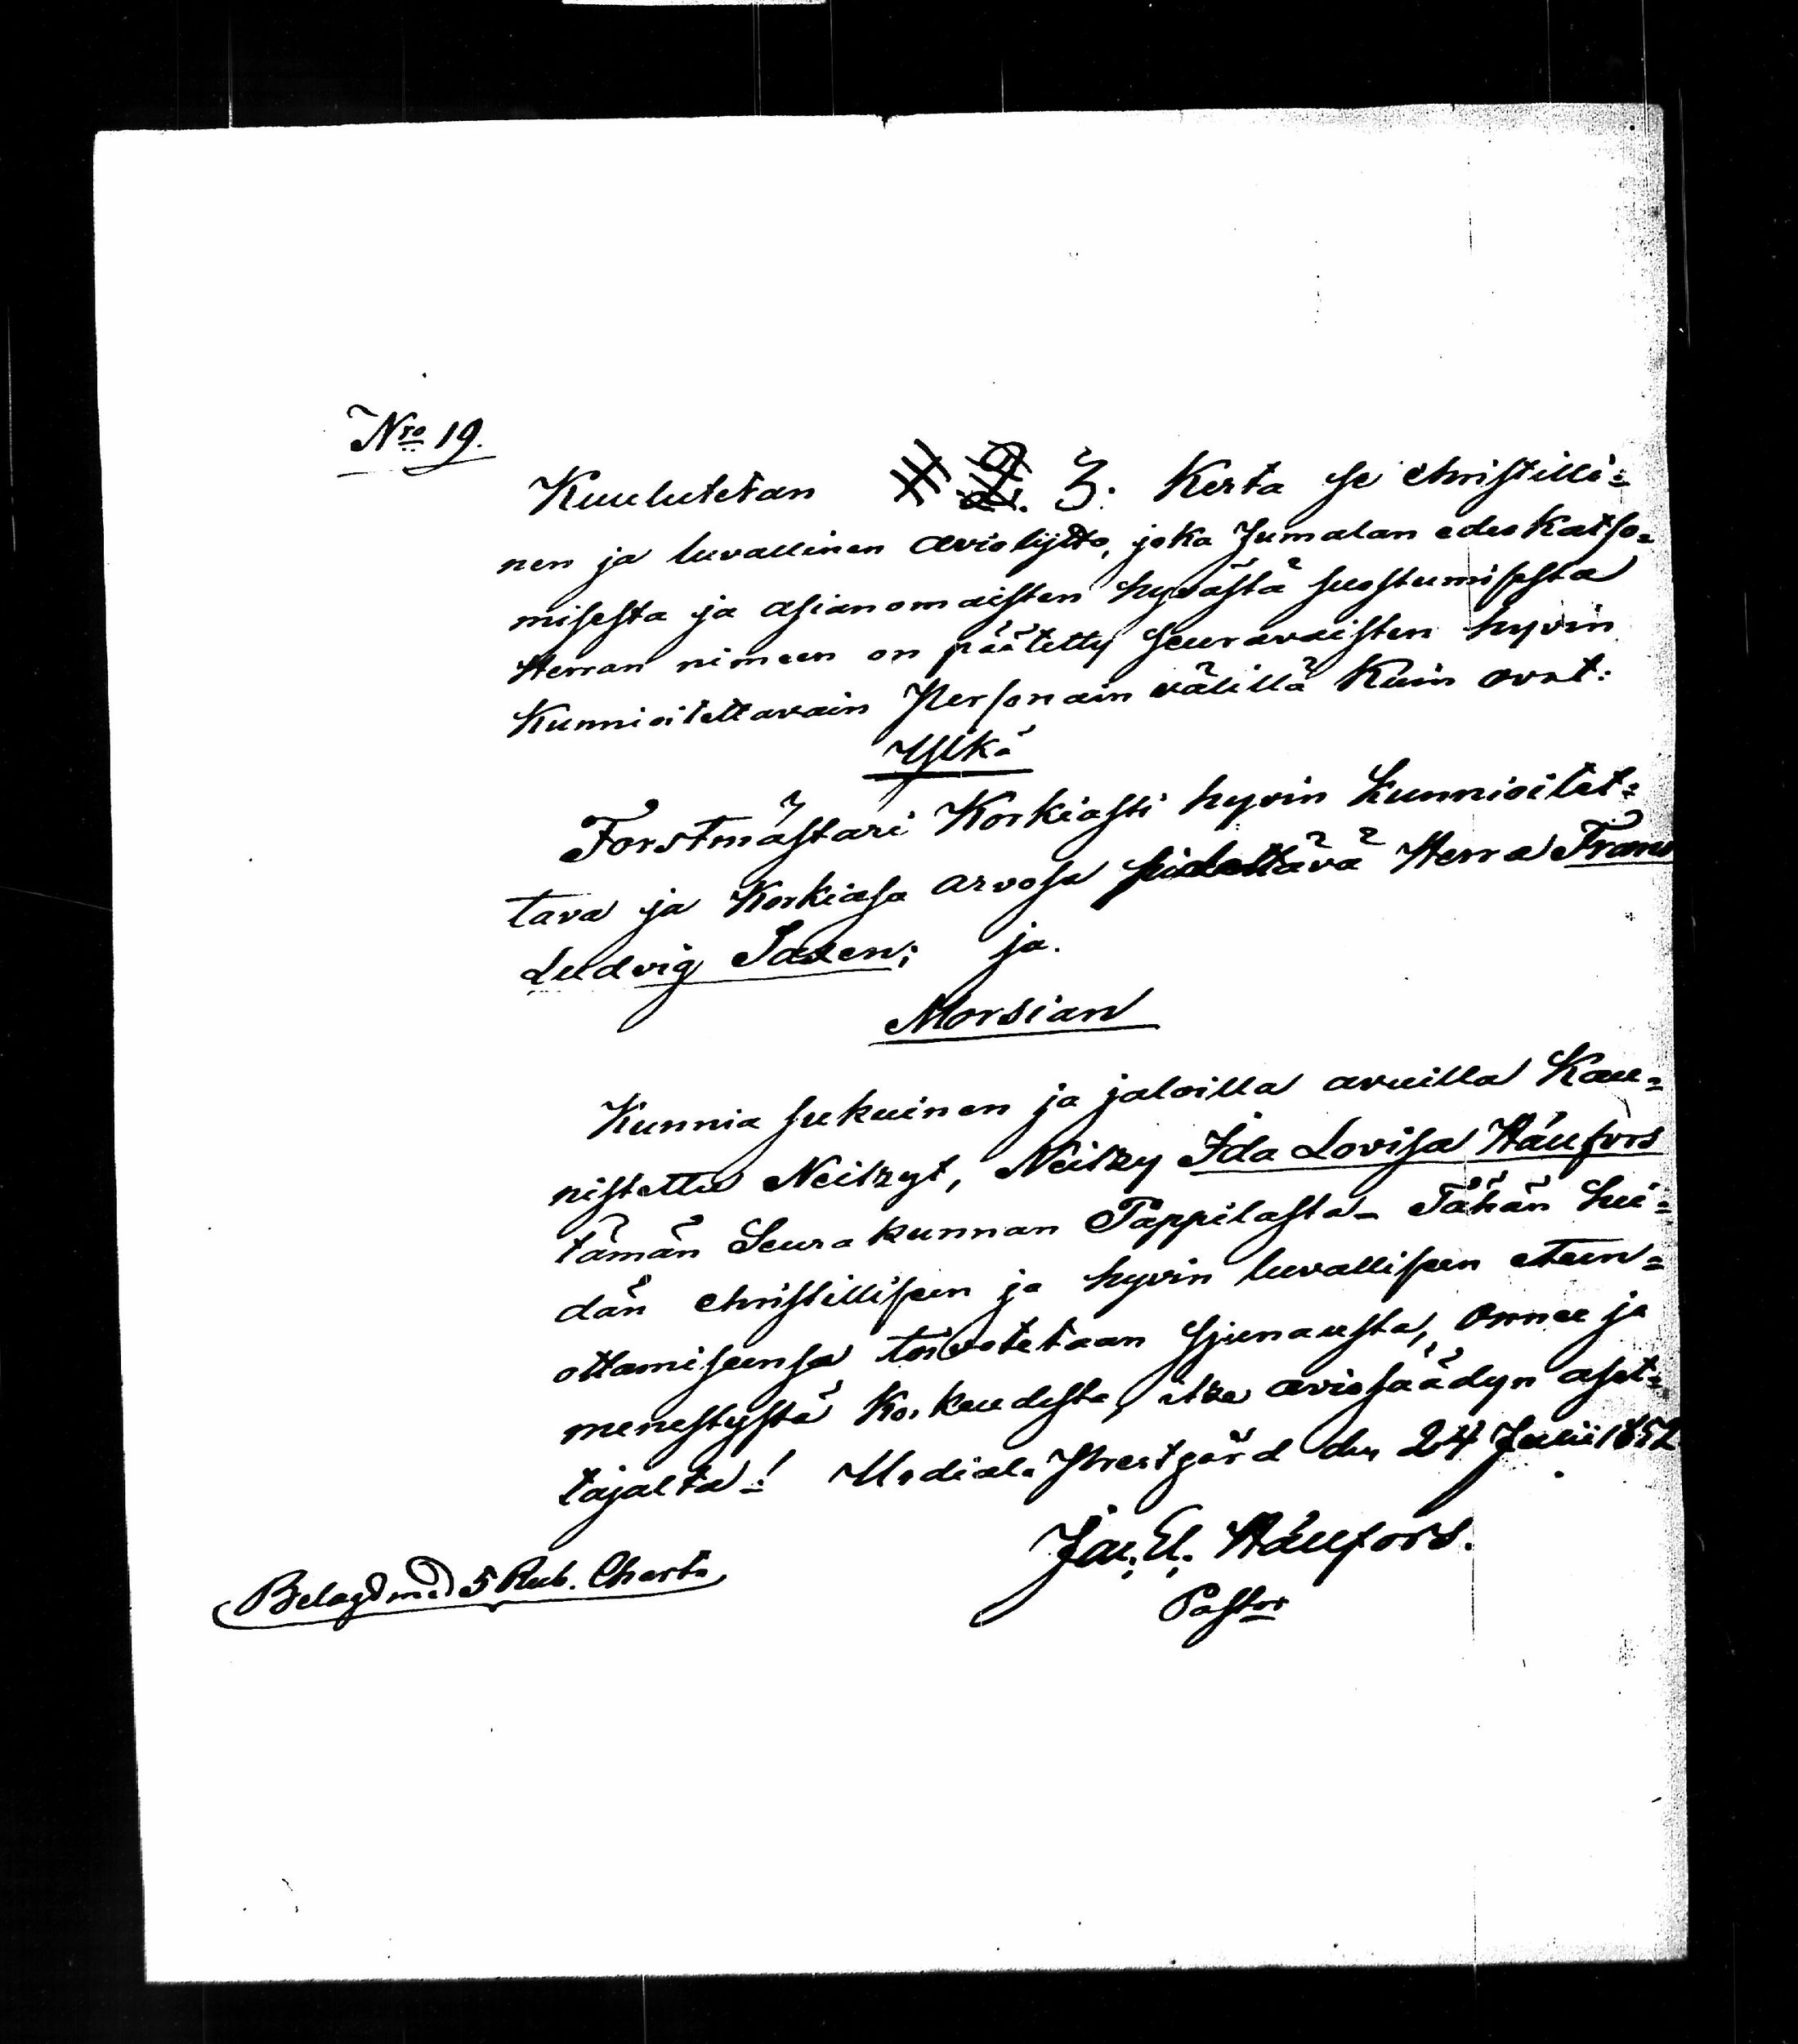 Nro 19.
Kuulutetan 3. Kerta se christilli=
nen ja luvallinen aviolijtto, joka Jumalan edeskatso=
misesta ja asianomaisten hyvästä suostumisesta
Herran nimeen on päätetty seuravaisten hyvin
Kunnioitettavain Personain välillä Kuin ovat:
Ylkä
Forstmästari Korkiasti hyvin kunnioitet=
tava ja Korkiasa arvosa pidettävä Herra Frans
Ludvig ja.
Morsian
Kunnia sukuinen ja jaloilla avuilla Kau=
nistettu Neitzyt, Neitzy Ida Lovisa Häufors
tämän Seurakunnan Pappilasta - Tähän hei=
dän christillisen ja hyvin luvallisen eteen=
ottamiseensa toivotetaan sjunausta, onnea ja
menestystä Korkeudesta, itze aviosäädyn aset=
tajalta! Urdiala Prestgård den 24 Julii 1852
Häufors.
Pastor
Belagd med 5 Rub. Charta